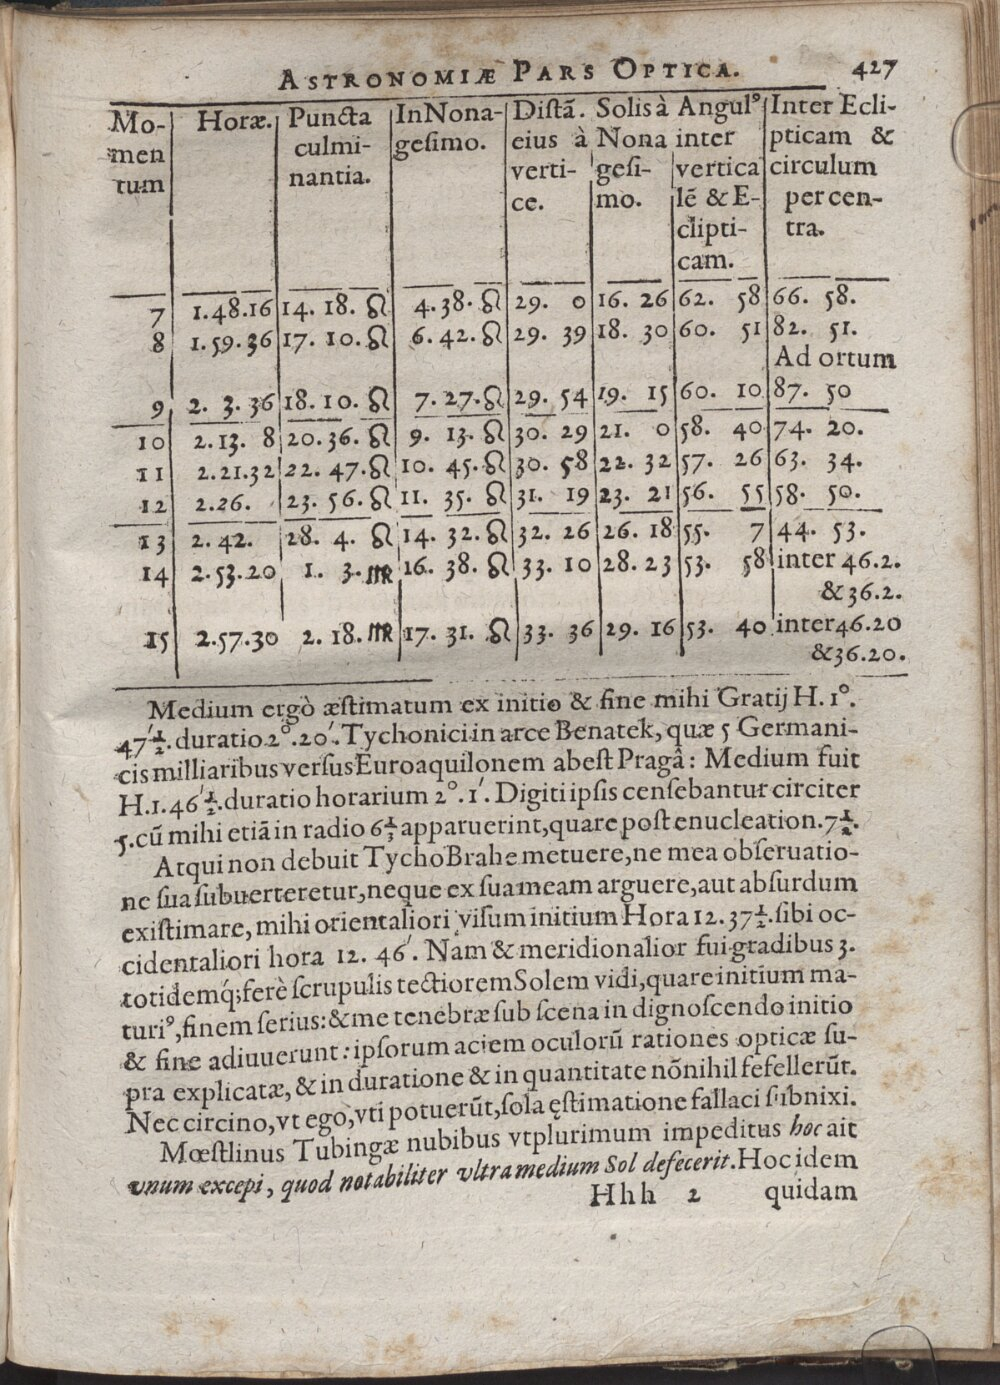 ASTRONOMIÆ PARS OPTICA. 427
Mo- Horæ. Puncta In Nona- Distã. Solis à Angulꝰ Inter Ecli-
men culmi- gesimo. eius à Nona inter pticam &
tum nantia. verti- gesi- vertica circulum
ce. mo. lẽ & E- per cen-
clipti- tra.
cam.
7 1.48.16 14. 18. ♌ 4.38. ♌ 29. 0 16. 26 62. 58 66. 58.
8 1.59.36 17. 10. ♌ 6. 42. ♌ 29. 39 18. 30 60. 51 82. 51.
Ad ortum
9 2. 3. 36 18. 10. ♌ 7. 27. ♌ 29. 54 19. 15 60. 10 87. 50
10 2.13. 8 20. 36. ♌ 9. 13. ♌ 30. 29 21. 0 58. 40 74. 20.
11 2.21.32 22. 47. ♌ 10. 45. ♌ 30. 58 22. 32 57. 26 63. 34.
12 2.26. 23. 56. ♌ 11. 35. ♌ 31. 19 23. 21 56. 55 58. 50.
13 2.42. 28. 4. ♌ 14. 32. ♌ 32. 26 26. 18 55. 7 44. 53.
14 2.53.20 1. 3. ♍ 16. 38. ♌ 33. 10 28. 23 53. 58 inter 46.2.
& 36.2.
15 2.57.30 2. 18. ♍ 17. 31. ♌ 33. 36 29. 16 53. 40 inter 46.20
& 36.20.
Medium ergò æstimatum ex initio & fine mihi Gratij H. 1°.
47′½. duratio 2°. 20′. Tychonici in arce Benatek, quæ 5 Germani-
cis milliaribus versus Euroaquilonem abest Pragâ: Medium fuit
H.1.46′½. duratio horarium 2°. 1′. Digiti ipsis censebantur circiter
5. cũ mihi etiã in radio 6½ apparuerint, quare post enucleation. 7½.
Atqui non debuit Tycho Brahe metuere, ne mea obseruatio-
ne sua subuerteretur, neque ex sua meam arguere, aut absurdum
existimare, mihi orientaliori visum initium Hora 12. 37½. sibi oc-
cidentaliori hora 12. 46′. Nam & meridionalior fui gradibus 3.
totidemq́; ferè scrupulis tectiorem Solem vidi, quare initium ma-
turiꝰ, finem serius: & me tenebræ sub scena in dignoscendo initio
& fine adiuuerunt: ipsorum aciem oculorũ rationes opticæ su-
pra explicatæ, & in duratione & in quantitate nõnihil fefellerũt.
Nec circino, vt ego, vti potuerũt, sola ęstimatione fallaci subnixi.
Mœstlinus Tubingæ nubibus vtplurimum impeditus hoc ait
vnum excepi, quod notabiliter vltra medium Sol defecerit. Hoc idem
Hhh 2 quidam